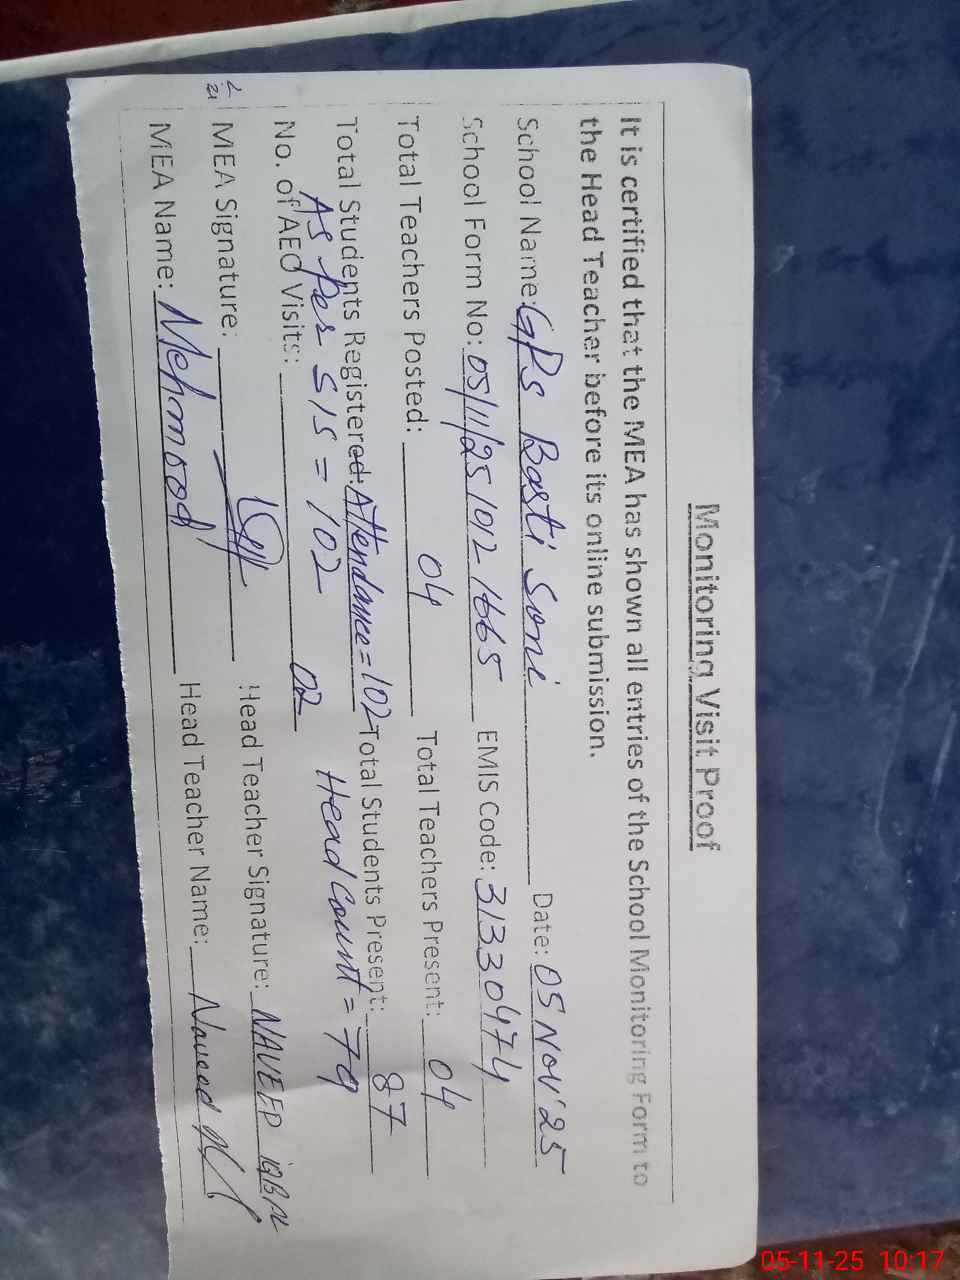 Monitoring Visit Proof
It is certified that the MEA has shown all entries of the School Monitoring Form to
the Head Teacher before its online submission.
School Name: GPS Basti Soni Date: 05 Nov'25
School Form No: 05/11/25/012 1665 EMIS Code: 31330474
Total Teachers Posted: 04 Total Teachers Present: 04
Total Students Registered: Attendance = 102 Total Students Present: 87
As Per SIS = 102 Head Count = 79
No. of AEO Visits: 02
MEA Signature: Head Teacher Signature: NAVEED
MEA Name: Mehmood Head Teacher Name: Naveed
05-11-25 10:17